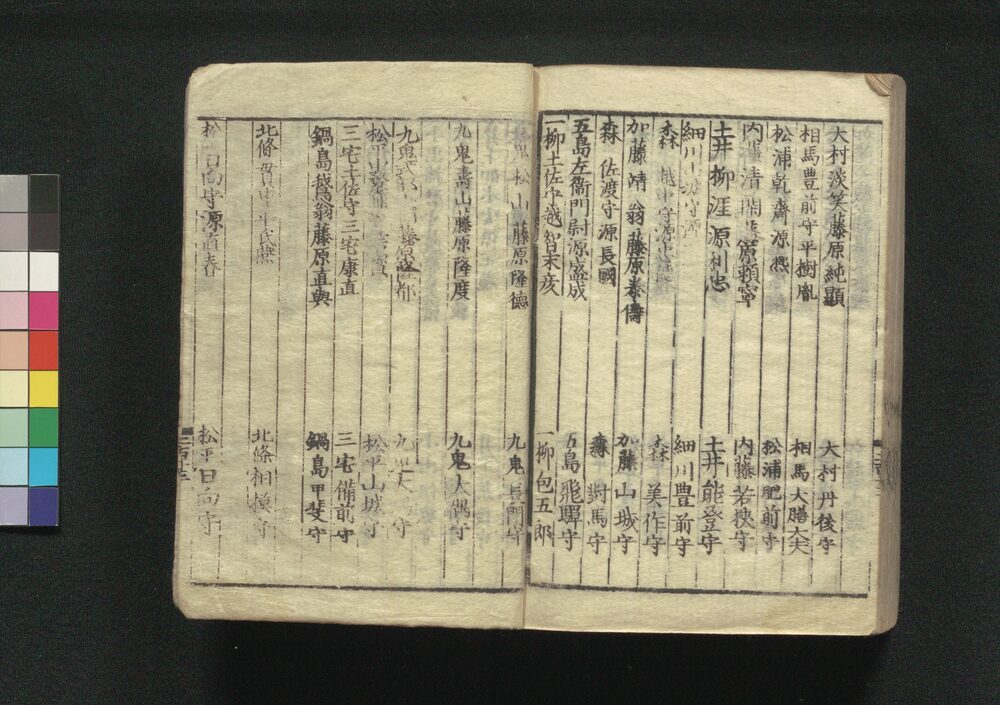 大村淡笑藤原純顯 大村丹後守
相馬豊前守平樹胤 相馬大膳大夫
松浦乾齋源熈 松浦肥前守
内藤 清 頼寧 内藤若狹守
土井柳涯源利忠 土井能登守
細川山城守源 細川豊前守
森 越中守源忠 森美作守
加藤靖翁藤原泰儔 加藤山城守
森佐渡守源長國 森對馬守
五島左衞門尉源盛成 五島飛驒守
一柳土佐守越智末彦 一柳包五郎
松山藤原隆德 九鬼長門守
九鬼壽山藤原隆度 九鬼大隅守
九鬼 藤原隆都 九鬼 守
松平 松平山城守
三宅土佐守三宅康直 三宅備前守
鍋島鷲翁藤原直與 鍋島甲斐守
北條 平氏燕 北條相模守
松平日向守源直春 松平日向守